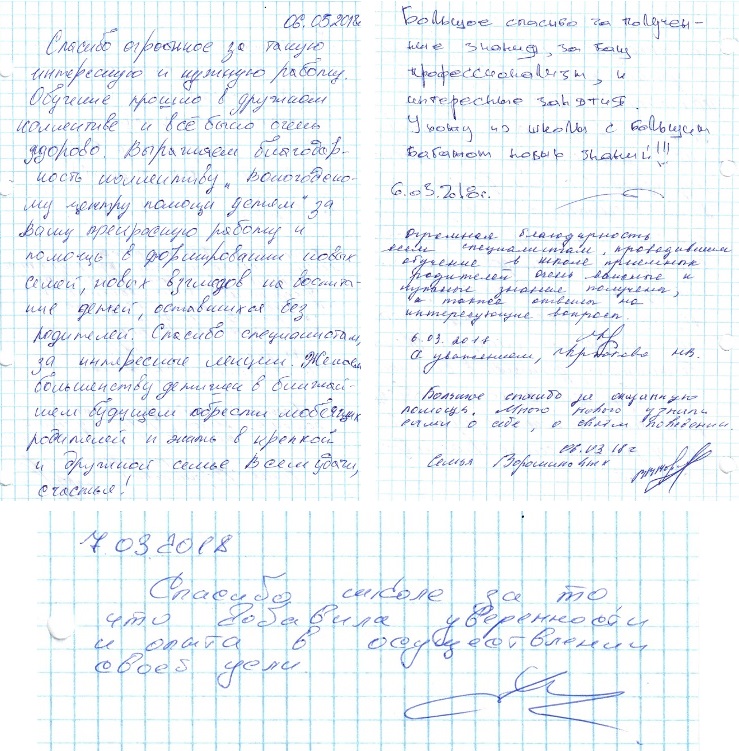 06.03.2018г
Спасибо огромное за такую
интересную и нужную работу.
Обучение прошло в дружном
коллективе и всё было очень
здорово. Выражаем благодар-
ность коллективу „Вологодско-
му центру помощи детям" за
Вашу прекрасную работу и
помощь в формировании новых
семей, новых взглядов на воспита-
ние детей, оставшихся без
родителей. Спасибо специалистам,
за интересные лекции. Желаем
большенству деточкам в ближай-
шем будущем обрести любящих
родителей и жить в крепкой
и дружной семье. Всем удачи,
счастья!
Большое спасибо за получен-
ные знания, за ваш
профессионализм, и
интересные занятия.
Ухожу из школы с большим
багажом новых знаний!!!
6.03.2018г.
Огромная благодарность
всем специалистам, проводившим
обучение в школе приемных
родителей очень важные и
нужные знания получены,
а также ответы на
интересующие вопросы
6.03.2018
С уважением, Н.В.
Большое спасибо за оказанную
помощь. Много нового узнали
сами о себе, о своём поведении.
06.03.18г
Семья
7.03.2018
Спасибо школе за то
что добавила уверенности
и опыта в осуществлении
своей цели.